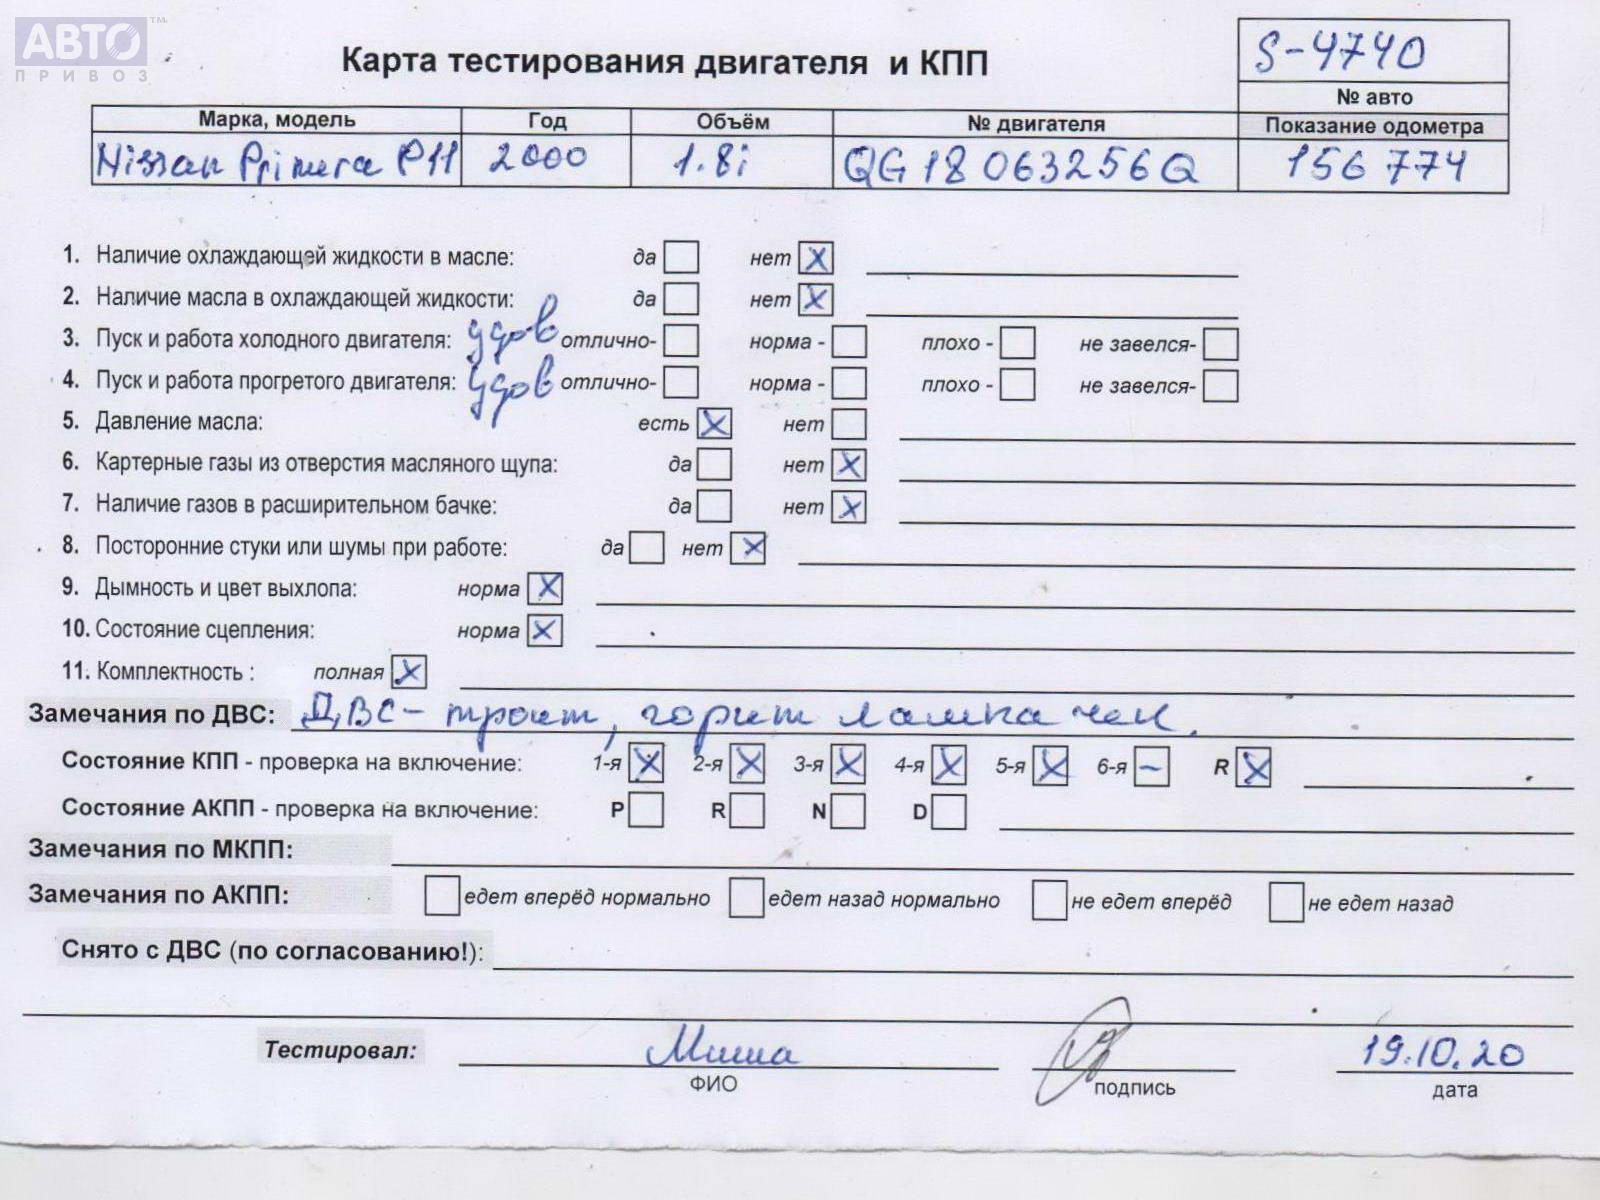 АВТО™
ПРИВОЗ
Карта тестирования двигателя и КПП
S-4740
№ авто
Марка, модель Год Объём № двигателя Показание одометра
Nissan Primera P11 2000 1.8i QG18 063256Q 156 774
1. Наличие охлаждающей жидкости в масле: да нет X
2. Наличие масла в охлаждающей жидкости: да нет X
3. Пуск и работа холодного двигателя: удов отлично- норма - плохо - не завелся-
4. Пуск и работа прогретого двигателя: удов отлично- норма - плохо - не завелся-
5. Давление масла: есть X нет
6. Картерные газы из отверстия масляного щупа: да нет X
7. Наличие газов в расширительном бачке: да нет X
8. Посторонние стуки или шумы при работе: да нет X
9. Дымность и цвет выхлопа: норма X
10. Состояние сцепления: норма X
11. Комплектность : полная X
Замечания по ДВС: ДВС - троит, горит лампа чек.
Состояние КПП - проверка на включение: 1-я X 2-я X 3-я X 4-я X 5-я X 6-я – R X
Состояние АКПП - проверка на включение: P R N D
Замечания по МКПП:
Замечания по АКПП: едет вперёд нормально едет назад нормально не едет вперёд не едет назад
Снято с ДВС (по согласованию!):
Тестировал: Миша 19.10.20
ФИО подпись дата